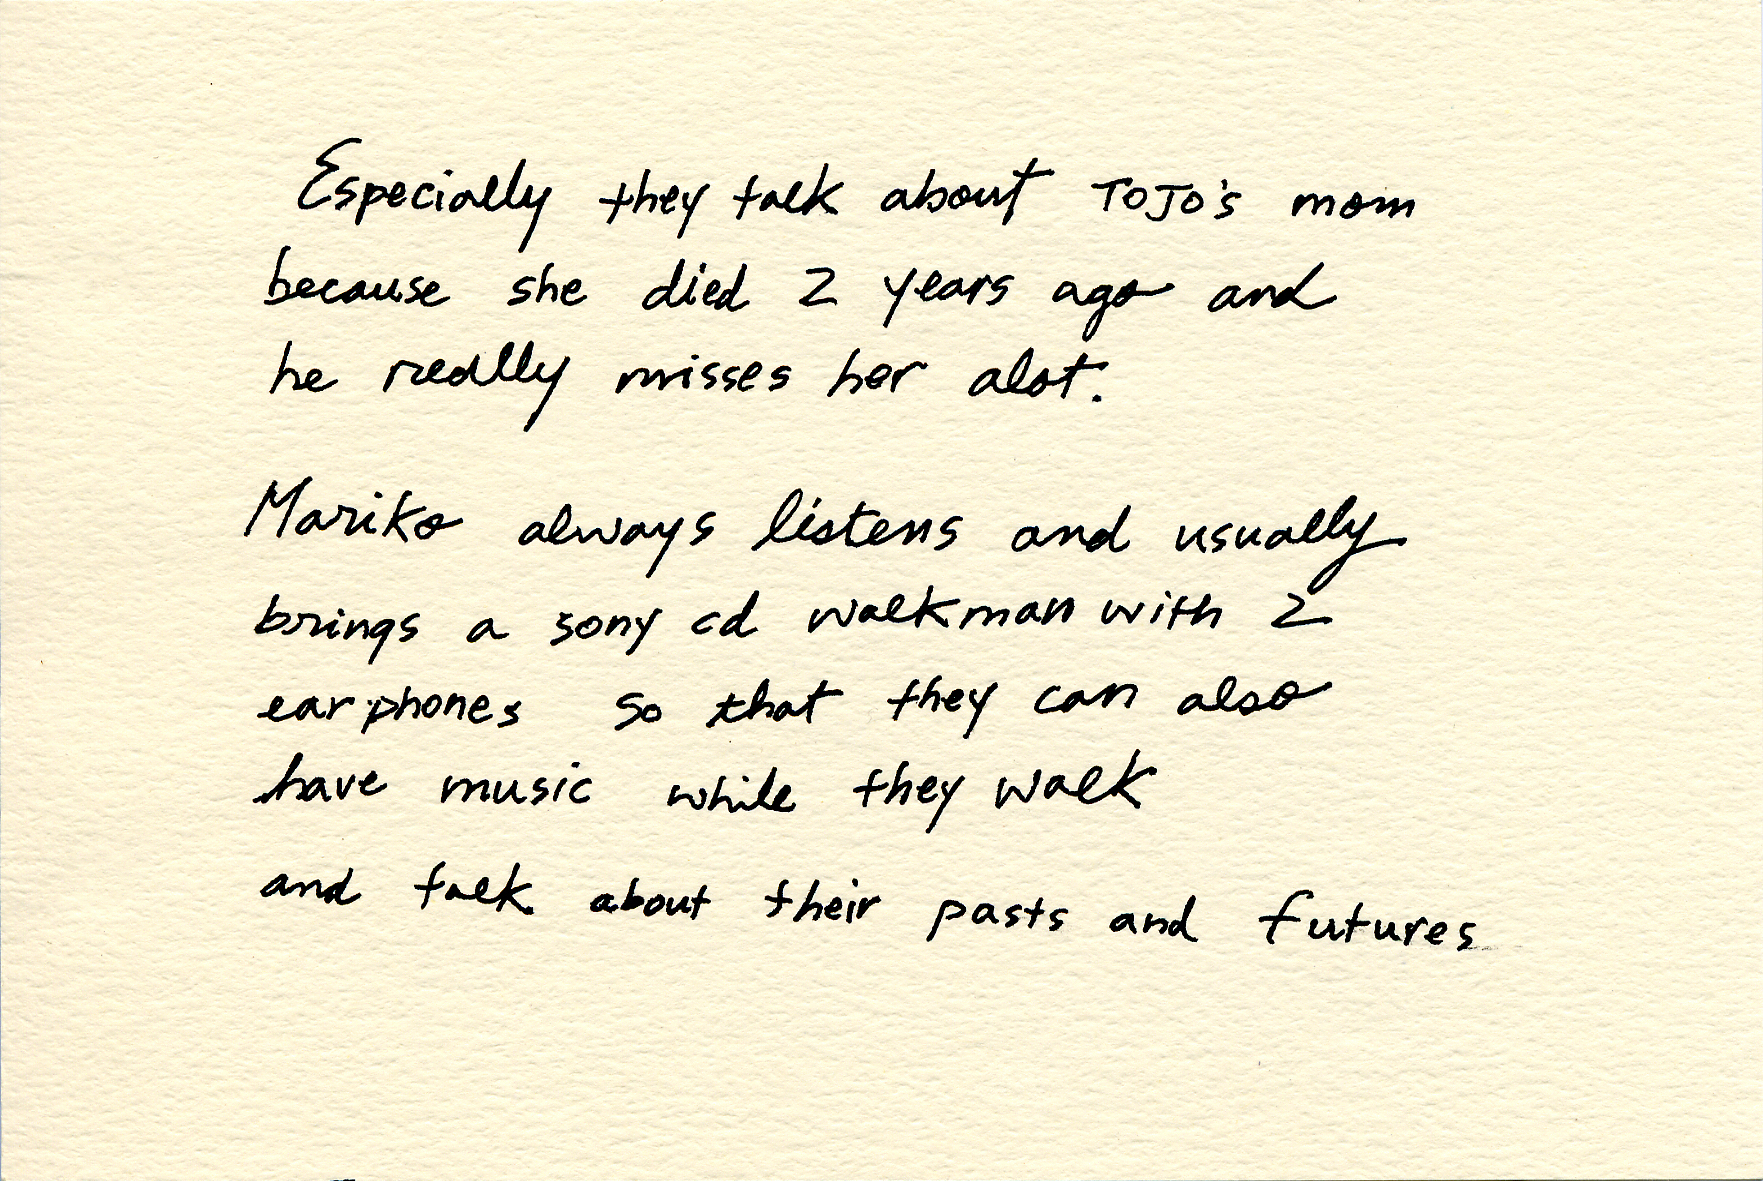 Especially they talk about ToJo's mom
because she died 2 years ago and
he reallly misses her alot.
Mariko always listens and usually
brings a sony cd walkman with 2
earphones so that they can also
have music while they walk
and talk about their pasts and futures